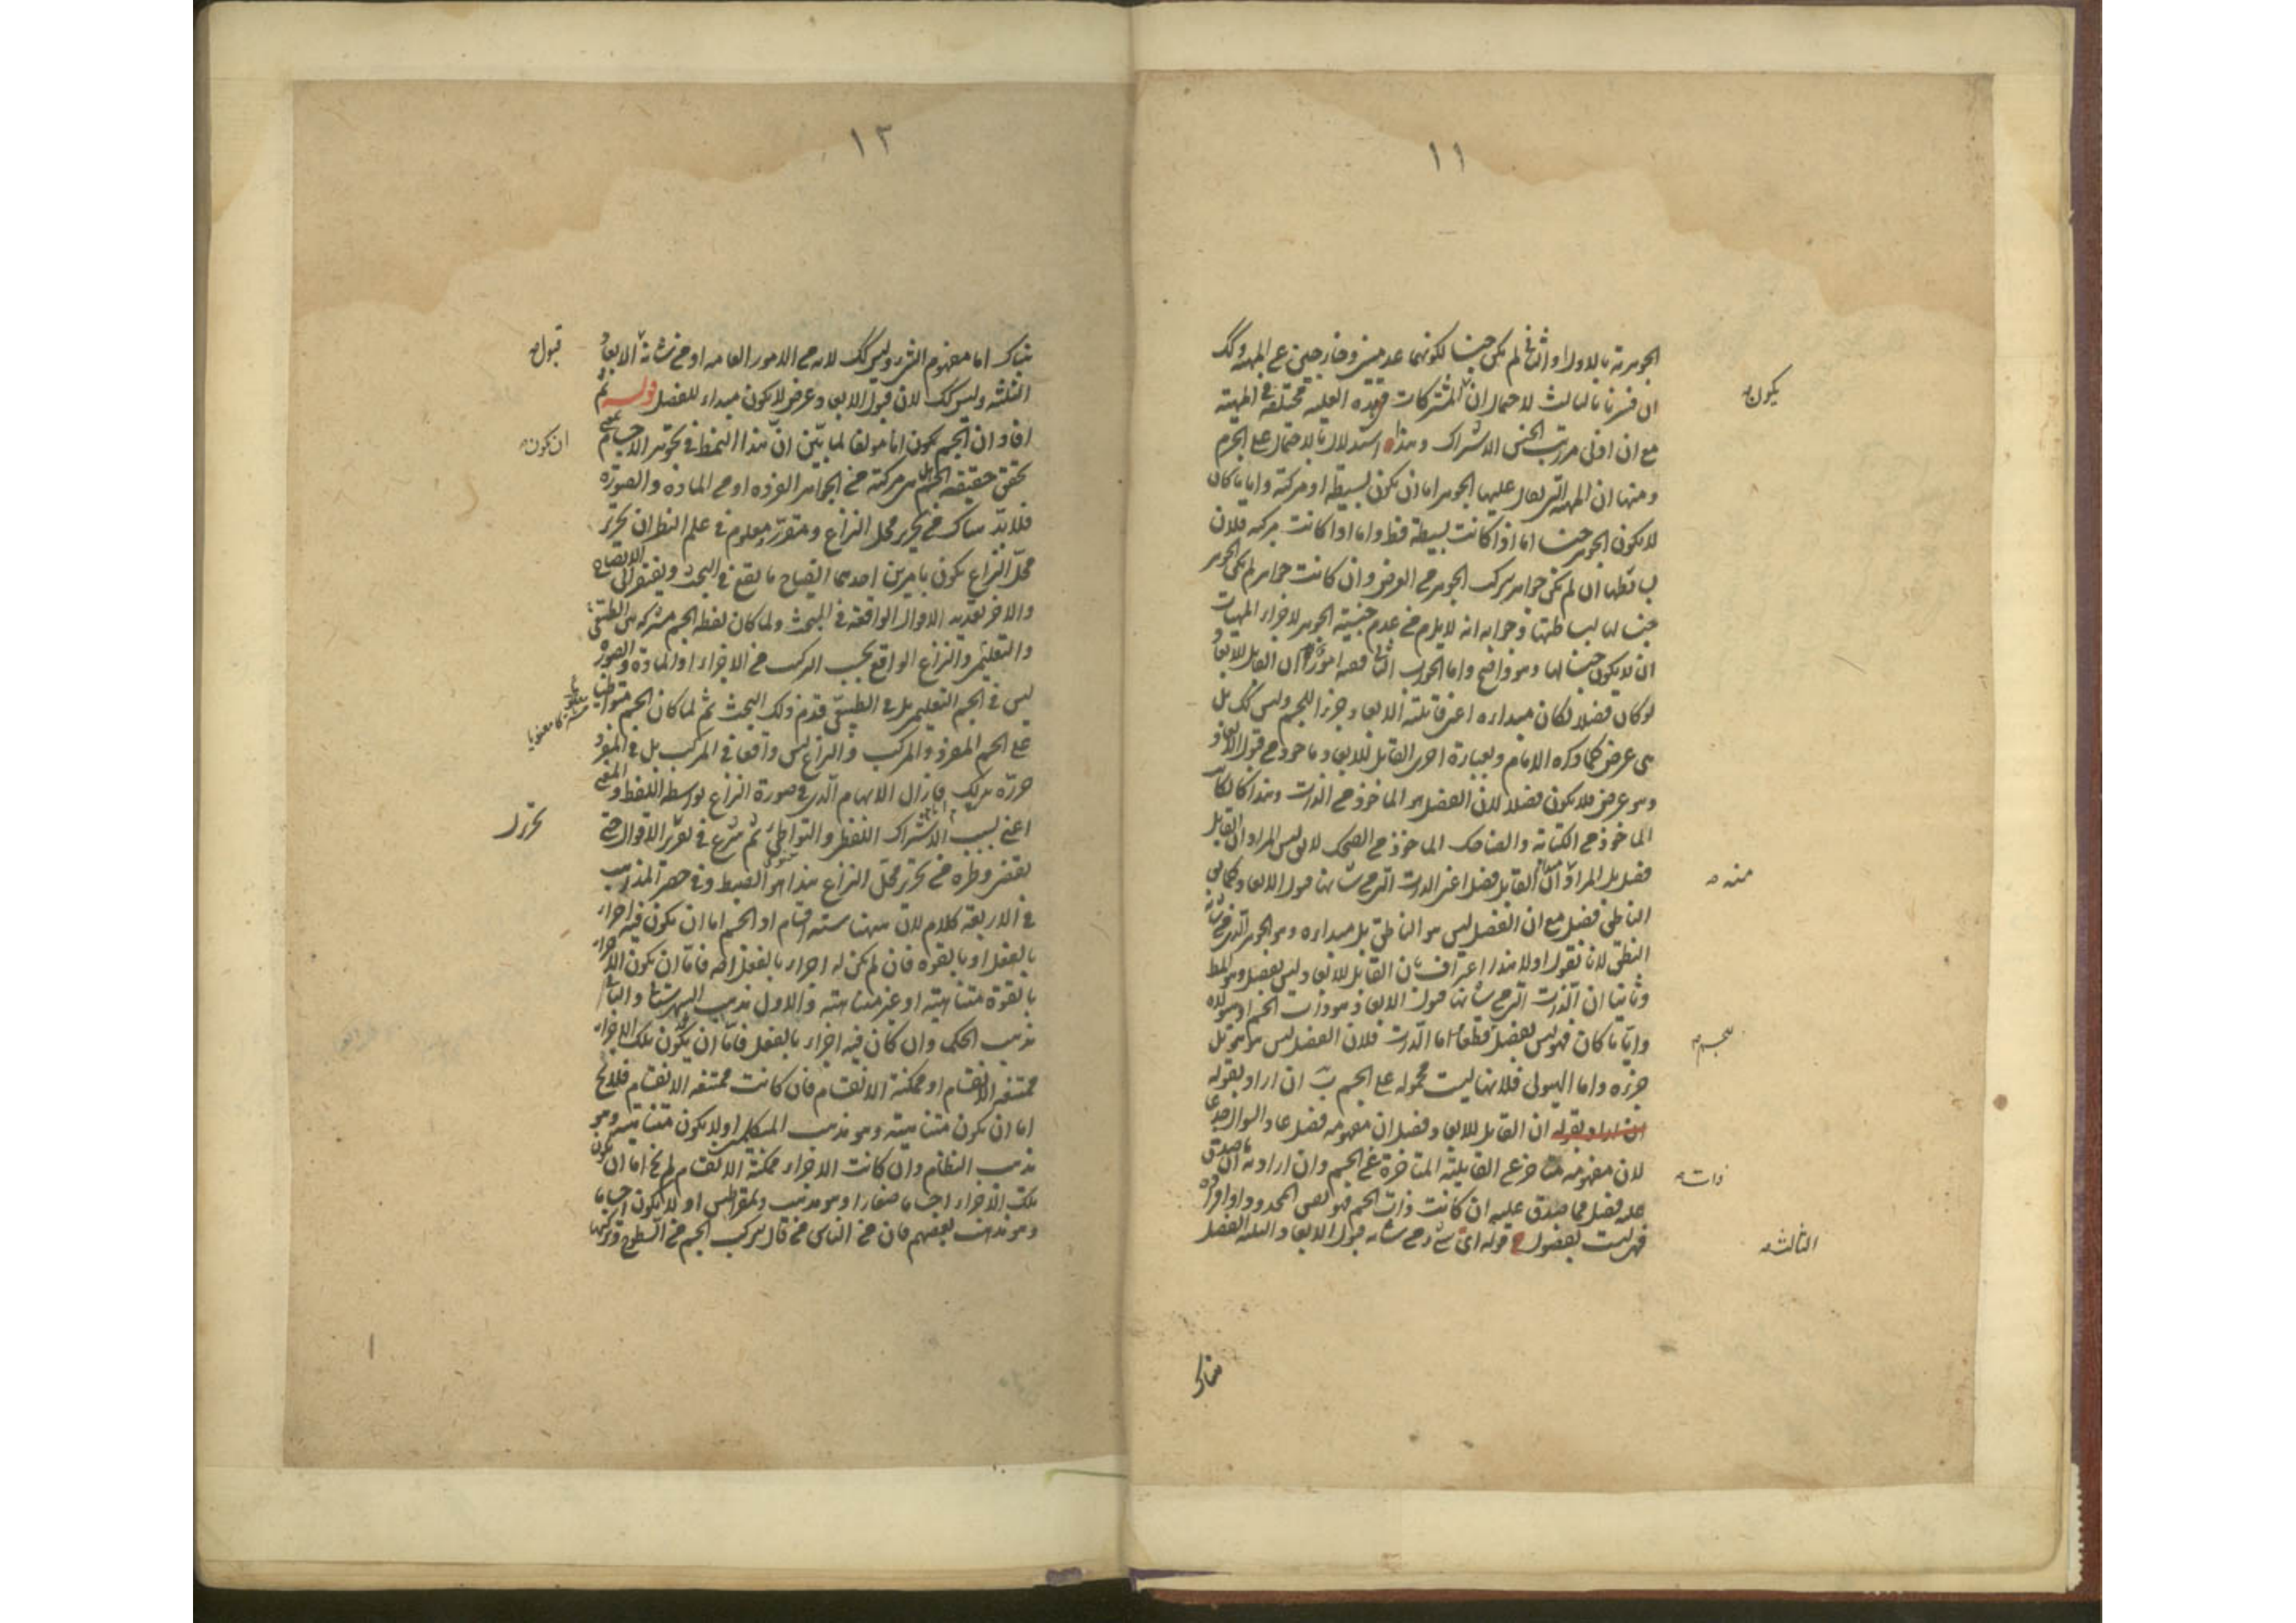 ١١
الجوهرية بالاول او الثانى لم يكن جنسا لكونهما عدميين وخارجيين عن المهية وكك
ان فسرنا بالثالث لاحتمال ان المشتركات فى هذه العلية مختلفة فى المهية
يكون
مع ان اولى مراتب الجنس الاشتراك وهذا استدلال بالاحتمال على الجزم
ومنها ان المهية التى يقال عليها الجوهر اما ان يكون بسيطة او مركبة وايا ما كان
لا يكون الجوهر جنسا اما اذا كانت بسيطة فظ واما اذا كانت مركبة فلان
بسائطها ان لم تكن جواهر تركب الجوهر من العرض وان كانت جواهر لم يكن الجوهر
جنسا لها لبساطتها وجوابه انه لا يلزم من عدم جنسية الجوهر لاجزاء المهيات
ان لا يكون جنسا لها وهو واضح واما الجواب الثانى ففيه امور ان القابل للابعاد
لو كان فصلا لكان مبداءه اعنى قابلية الابعاد جزء الجسم وليس كك بل
هى عرض كما ذكره الامام وبعبارة اخرى القابل للابعاد ماخوذ من قبول الابعاد
وهو عرض فلا يكون فصلا لان الفصل هو الماخوذ من الذات وهذا كالكاتب
الماخوذ من الكتابة والضاحك الماخوذ من الضحك لا يق ليس المراد ان القابل
فصل بل المراد ان القابل فصل اعنى الذات التى من شانها قبول الابعاد كما يق
منه
الناطق فصل مع ان الفصل ليس هو الناطق بل مبداءه وهو الجوهر الذى من شانه
النطق لانا نقول اولا هذا اعتراف بان القابل للابعاد ليس بفصل وهو المط
وثانيا ان الذات التى من شانها قبول الابعاد هو ذات الجسم او هيولاه
وايا ما كان فهو ليس بفصل قطعا اما الذات فلان الفصل ليس هو هو بل
للجسم
جزءه واما الهيولى فلانها ليست محمولة على الجسم ان اراد بقوله
ان اراد بقوله ان القابل للابعاد فصل ان مفهومه فصل عاد السؤال
لان مفهومه متاخر عن القابلية المتاخرة عن الجسم وان اراد به ان ما صدق
ذات
عليه فصل فما صدق عليه ان كانت ذات الجسم فهو نفس المحدود او افراده
فهى ليست بفصول قوله اى شئ من شانه قبول الابعاد الثلثة الفصل
الثالثة
هناك
١٢
هناك اما مفهوم الشئ وليس كك لانه من الامور العامة او من شانه الابعاد
قبول
الثلثة وليس كك لان قبول الابعاد عرض لا يكون مبداء للفصل قوله ثم
افاد ان الجسم يكون اما مؤلفا لما بين ان هذا النمط فى تجوهر الاجسام
ان يكون
تحقق حقيقة الجسم هل هى مركبة من الجواهر الفردة او من المادة والصورة
فلا بد هناك من تحرير محل النزاع ومقرر معلوم فى علم النظر ان تحرير
محل النزاع يكون بامرين احدهما ايضاح ما يقع فى البحث ويفتقر الى الايضاح
والاخر تعديد الاقوال الواقعة فى البحث ولما كان لفظ الجسم مشتركة بين الطبيعى
والتعليمى والنزاع الواقع بحسب التركب من الاجزاء او المادة والصورة
ليس فى الجسم التعليمى بل فى الطبيعى قدم ذلك البحث ثم لما كان الجسم متواطيا
على الجسم المفرد والمركب والنزاع ليس واقعا فى المركب بل فى المفرد
حرره بذلك فازال الابهام الذى فى صورة النزاع بواسطة اللفظ والمعنى
تحرير
اعنى بسبب الاشتراك اللفظى والتواطى ثم شرع فى تقرير الاقوال حتى
يقضى وطره من تحرير محل النزاع هذا هو الضبط وفى حصر المذاهب
فى الاربعة كلام لان ههنا ستة اقسام اذ الجسم اما ان يكون فيه اجزاء
بالفعل او بالقوة فان لم يكن له اجزاء بالفعل اصلا فاما ان يكون الاجزاء
بالقوة متناهية او غير متناهية والاول مذهب الشهرستانى والثانى
مذهب الحكماء وان كان فيه اجزاء بالفعل فاما ان يكون تلك الاجزاء
ممتنعة الانقسام او ممكنة الانقسام فان كانت ممتنعة الانقسام فلا يخ
اما ان يكون متناهية وهو مذهب المتكلمين او لا يكون متناهية وهو
مذهب النظام وان كانت الاجزاء ممكنة الانقسام لم يخ اما ان يكون
تلك الاجزاء اجساما صغارا وهو مذهب ذيمقراطيس او لا يكون اجساما
وهو مذهب بعضهم فان من الناس من قال بتركب الجسم من السطوح وتركبها